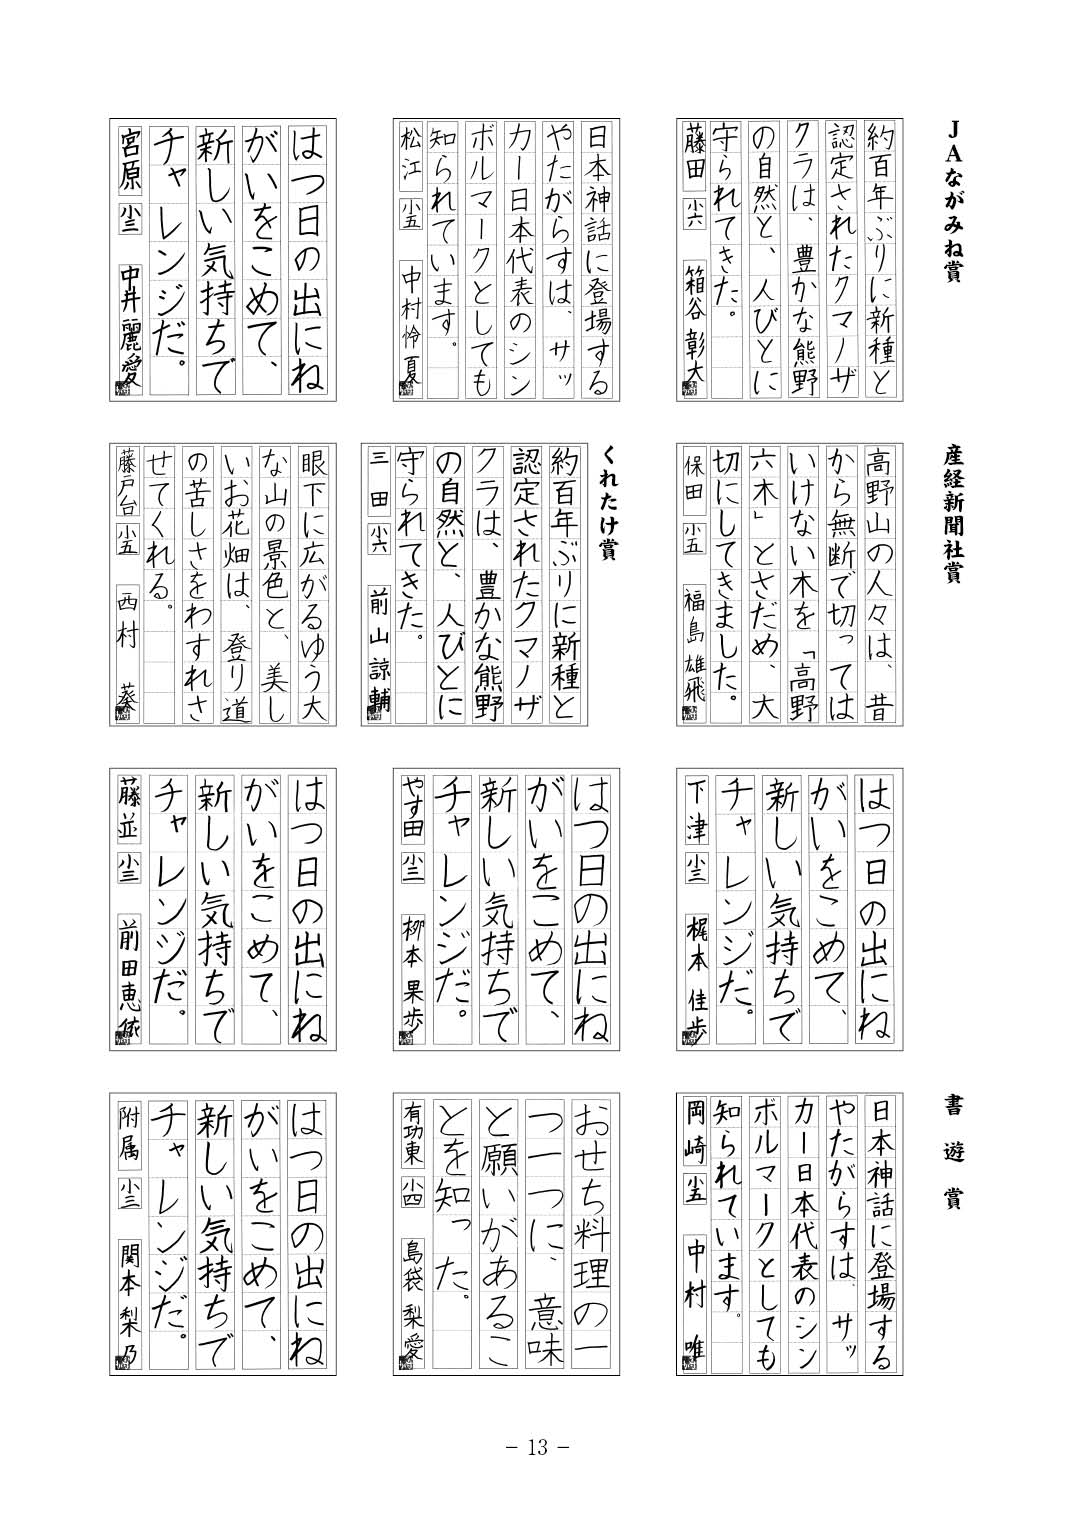 JAながみね賞
約百年ぶりに新種と
認定されたクマノザ
クラは、豊かな熊野
の自然と、人びとに
守られてきた。
藤田 小六 箱谷彰大
日本神話に登場する
やたがらすは、サッ
カー日本代表のシン
ボルマークとしても
知られています。
松江 小五 中村怜夏
はつ日の出にね
がいをこめて、
新しい気持ちで
チャレンジだ。
宮原 小三 中井麗愛
産経新聞社賞
高野山の人々は、昔
から無断で切っては
いけない木を「高野
六木」とさだめ、大
切にしてきました。
保田 小五 福島雄飛
くれたけ賞
約百年ぶりに新種と
認定されたクマノザ
クラは、豊かな熊野
の自然と、人びとに
守られてきた。
三田 小六 前山諒輔
眼下に広がるゆう大
な山の景色と、美し
いお花畑は、登り道
の苦しさをわすれさ
せてくれる。
藤戸台 小五 西村 葵
はつ日の出にね
がいをこめて、
新しい気持ちで
チャレンジだ。
下津 小三 梶本佳歩
はつ日の出にね
がいをこめて、
新しい気持ちで
チャレンジだ。
やす田 小三 栁本果歩
はつ日の出にね
がいをこめて、
新しい気持ちで
チャレンジだ。
藤並 小三 前田恵依
書遊賞
日本神話に登場する
やたがらすは、サッ
カー日本代表のシン
ボルマークとしても
知られています。
岡崎 小五 中村 唯
おせち料理の一
つ一つに、意味
と願いがあるこ
とを知った。
有功東 小四 島袋梨愛
はつ日の出にね
がいをこめて、
新しい気持ちで
チャレンジだ。
附属 小三 関本梨乃
- 13 -